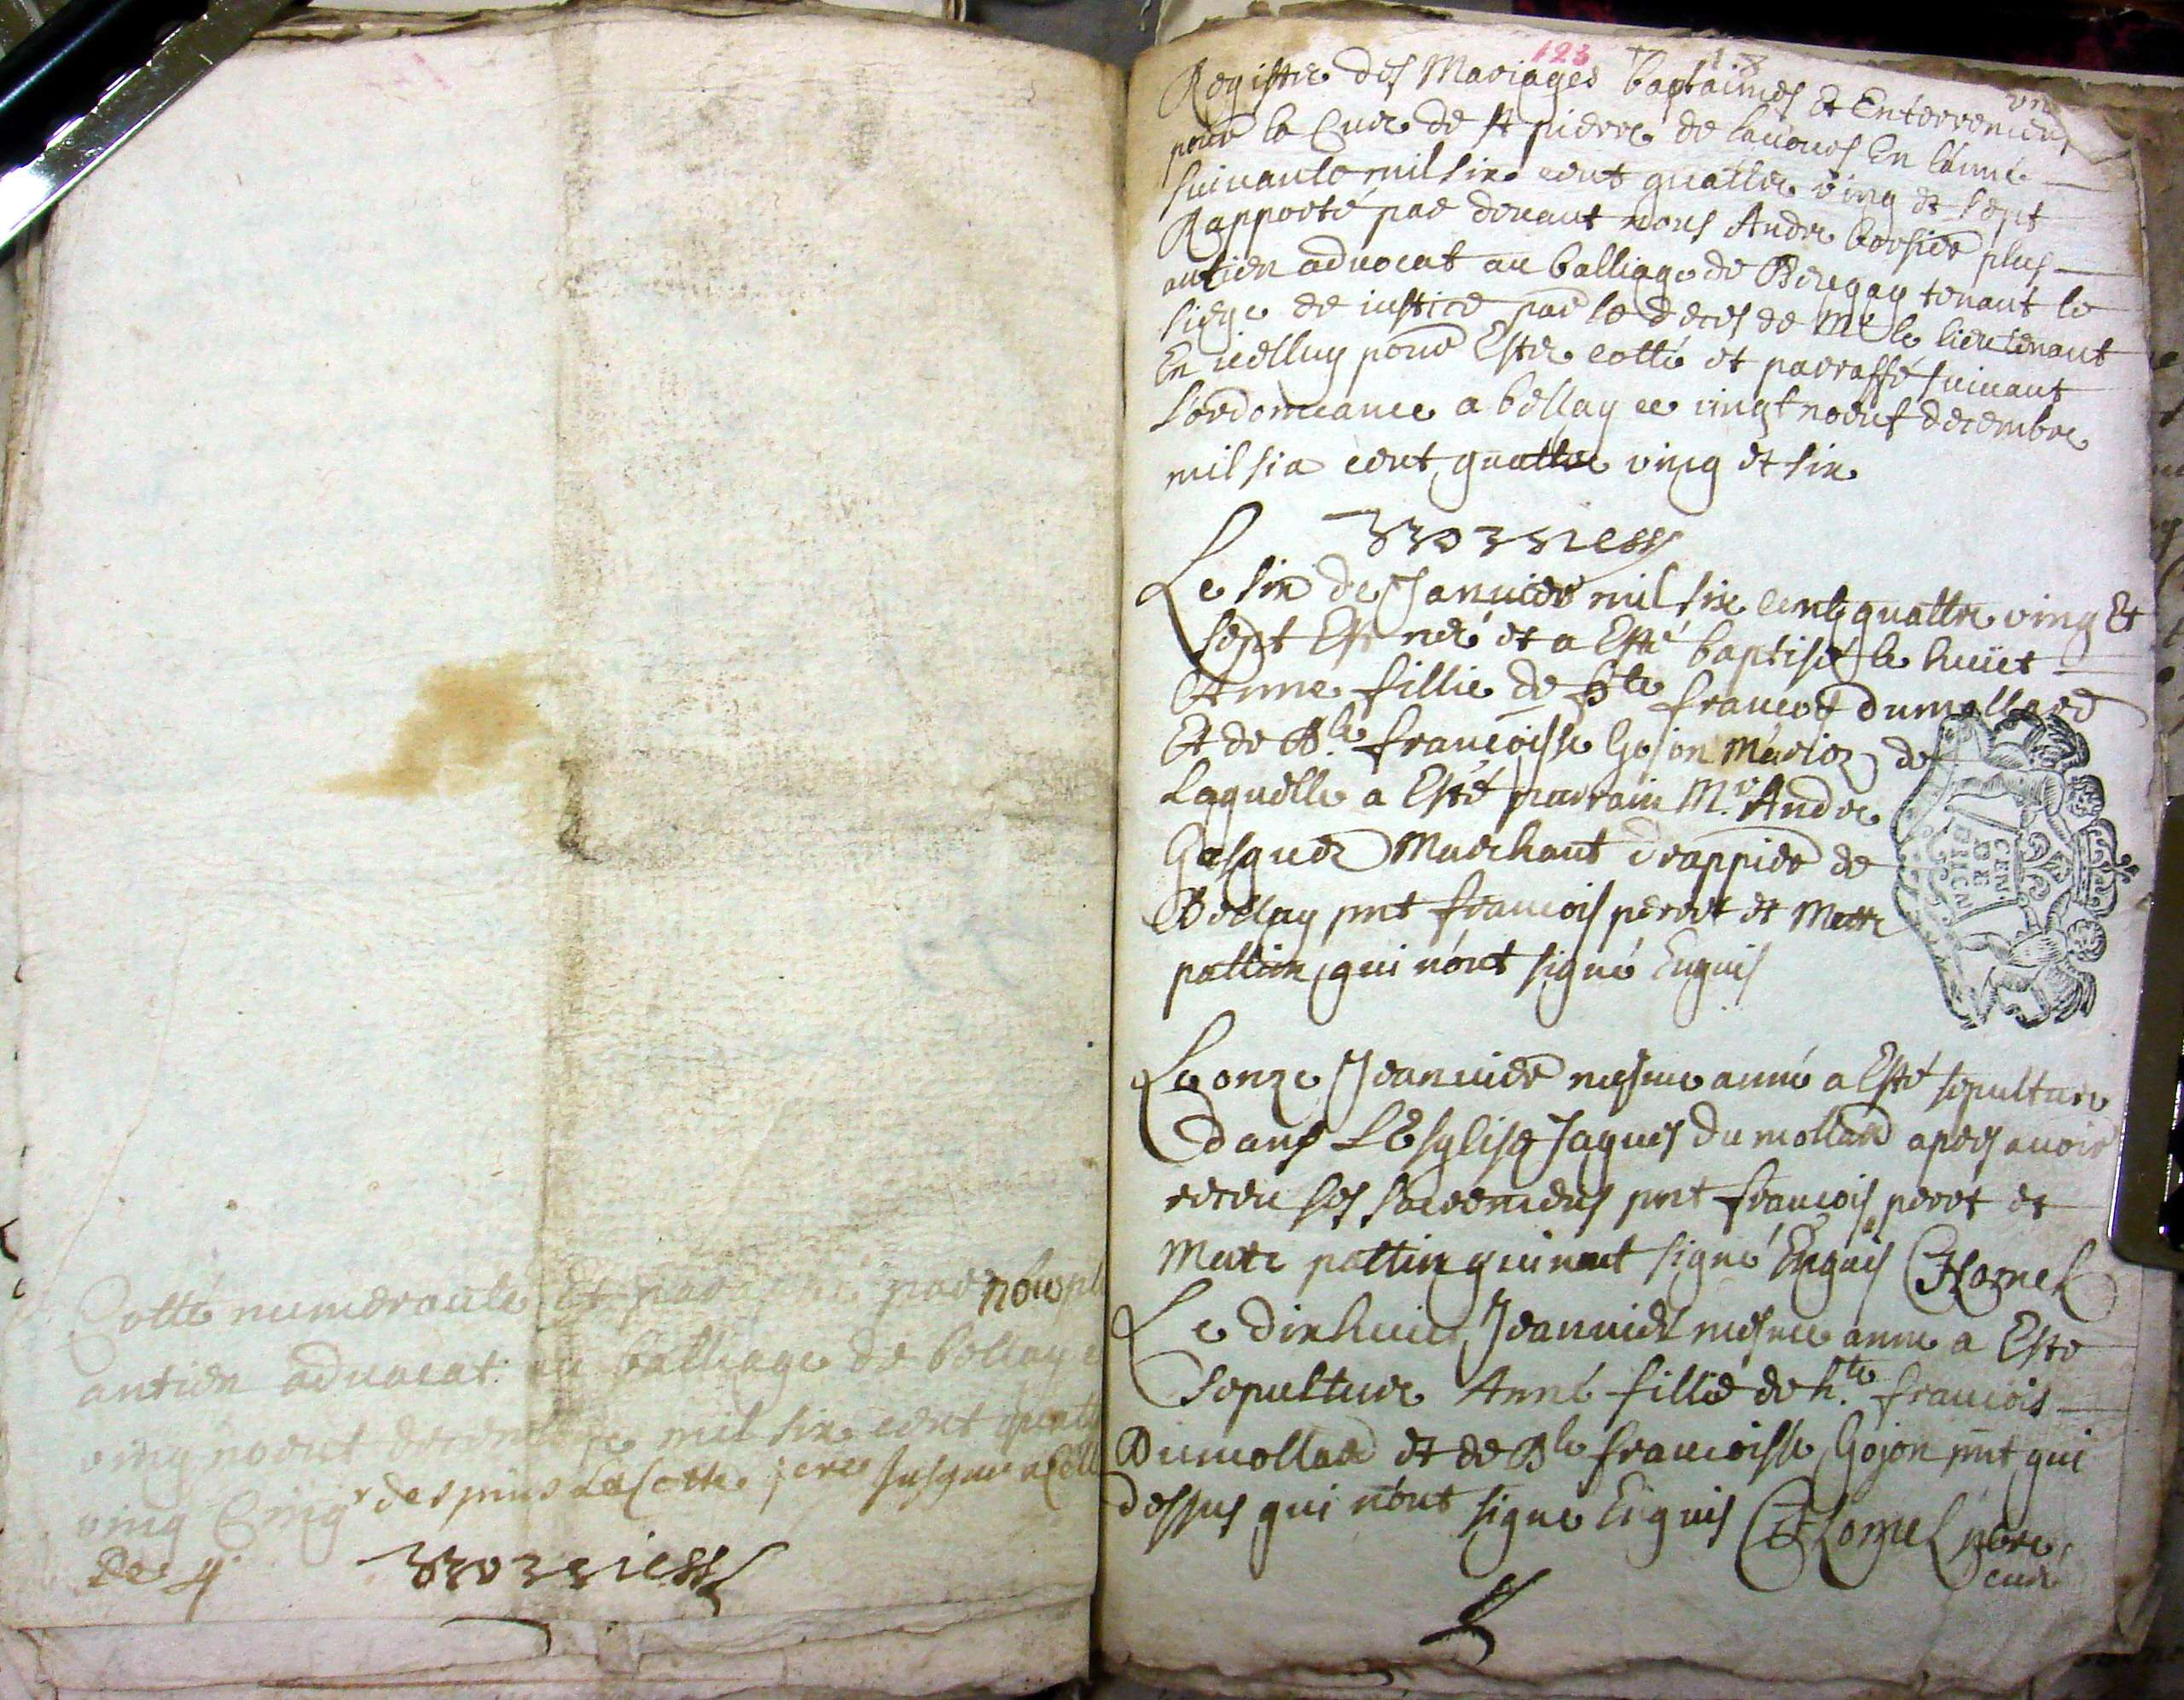 Cotté numeroute et paraphé par nous pl
antien advocat au balliage de bellay
ving noeuf decembre mil six cent quatt
ving Cinq despuis La Cotte jere Jusques a Celle
De 4
123
Registre des Mariages baptaimes Et Enterremens
pour la Cure de St pierre de En lannée
suiuante mil six cent quattre ving et sept
Rapporté par deuant nous Andre plus
antien aduocat au balliage de Beugay tenant le
siege de iustice par le deces de Mr le lieutenant
En icelluy pour Estre cotté et parraffé suiuant
Lordonnance a bellay ce vingt noeuf decembre
mil six cent quattre ving et six
Le six de Januier mil six cent quattre ving Et
sept Est neé et a Esté baptisé le huict
Anne fillie de hte francois dumollard
Et de hble francoisse Gojon Mariez de
Laquelle a Esté parrain Mr Andre
Gasques Marchant drappier de
Bellay pnt francois perret et Matte
pattin qui nont signé Enquis
Le onze Jeanuier mesme anné a Esté sepulture
dans LEsglise Jaques Dumollard apres auoir
receu ses sacremens pnt francois perret et
Matte pattin qui nont signé Enquis
Le dixhuict Jeanuier mesme anne a Este
sepulture Anne fillie de hte francois
Dumollard et de hble francoisse Gojon pnt qui
dessus qui nont signe Enquis
cure